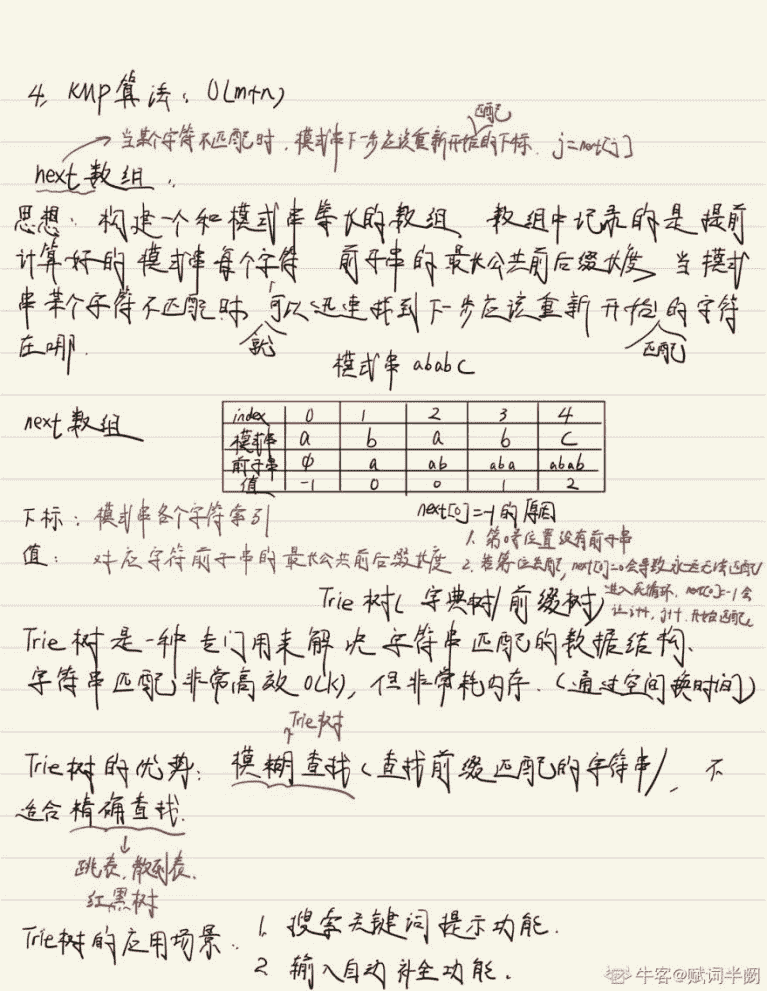 4. KMP算法：O(m+n)
匹配
→ 当某个字符不匹配时，模式串下一步应该重新开始的下标. j=next[j]
next数组.
思想：构建一个和模式串等长的数组 数组中记录的是提前
计算好的模式串每个字符 前子串的最长公共前后缀长度，当模式
串某个字符不匹配时，可以迅速找到下一步应该重新开始的字符
在哪. 就 匹配
模式串 ababc
next数组
index 0 1 2 3 4
模式串 a b a b c
前子串 φ a ab aba abab
值 -1 0 0 1 2
下标：模式串各个字符索引
next[0]=-1的原因
1. 第0号位置没有前子串
值：对应字符前子串的最长公共前后缀长度
2. 若第0位失配, next[0]=0会导致永远无法匹配
进入死循环. next[0]=-1会
让i++, j++, 开始匹配.
Trie树(字典树/前缀树)
Trie树是一种专门用来解决字符串匹配的数据结构.
字符串匹配非常高效O(k)，但非常耗内存.(通过空间换时间)
Trie树
Trie树的优势：模糊查找(查找前缀匹配的字符串)，不
适合精确查找.
↓
跳表, 散列表.
红黑树
Trie树的应用场景. 1. 搜索关键词提示功能.
2 输入自动补全功能.
牛客@赋词半阙